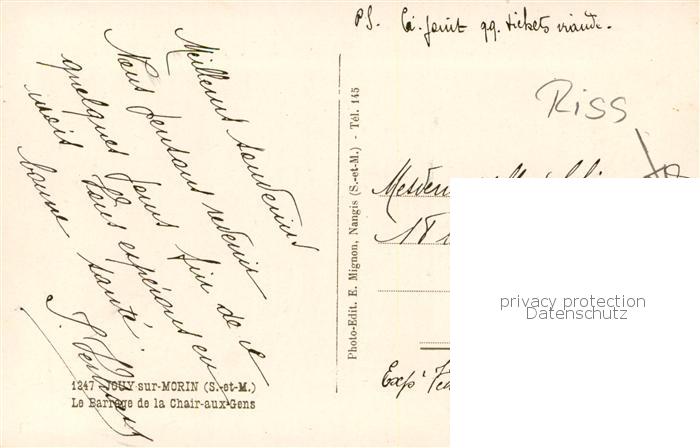 P.S. Ci-joint qq. tickets viande.
Meilleurs souvenirs
Nous pensons revenir
quelques jours fin de ce
mois. Vous espérons en
bonne santé.
Riss
18
Exp'
Photo-Edit. E. Mignon, Nangis (S.-et-M.) - Tél. 145
1247 - JOUY-sur-MORIN (S.-et-M.)
Le Barrage de la Chair-aux-Gens
privacy protection
Datenschutz